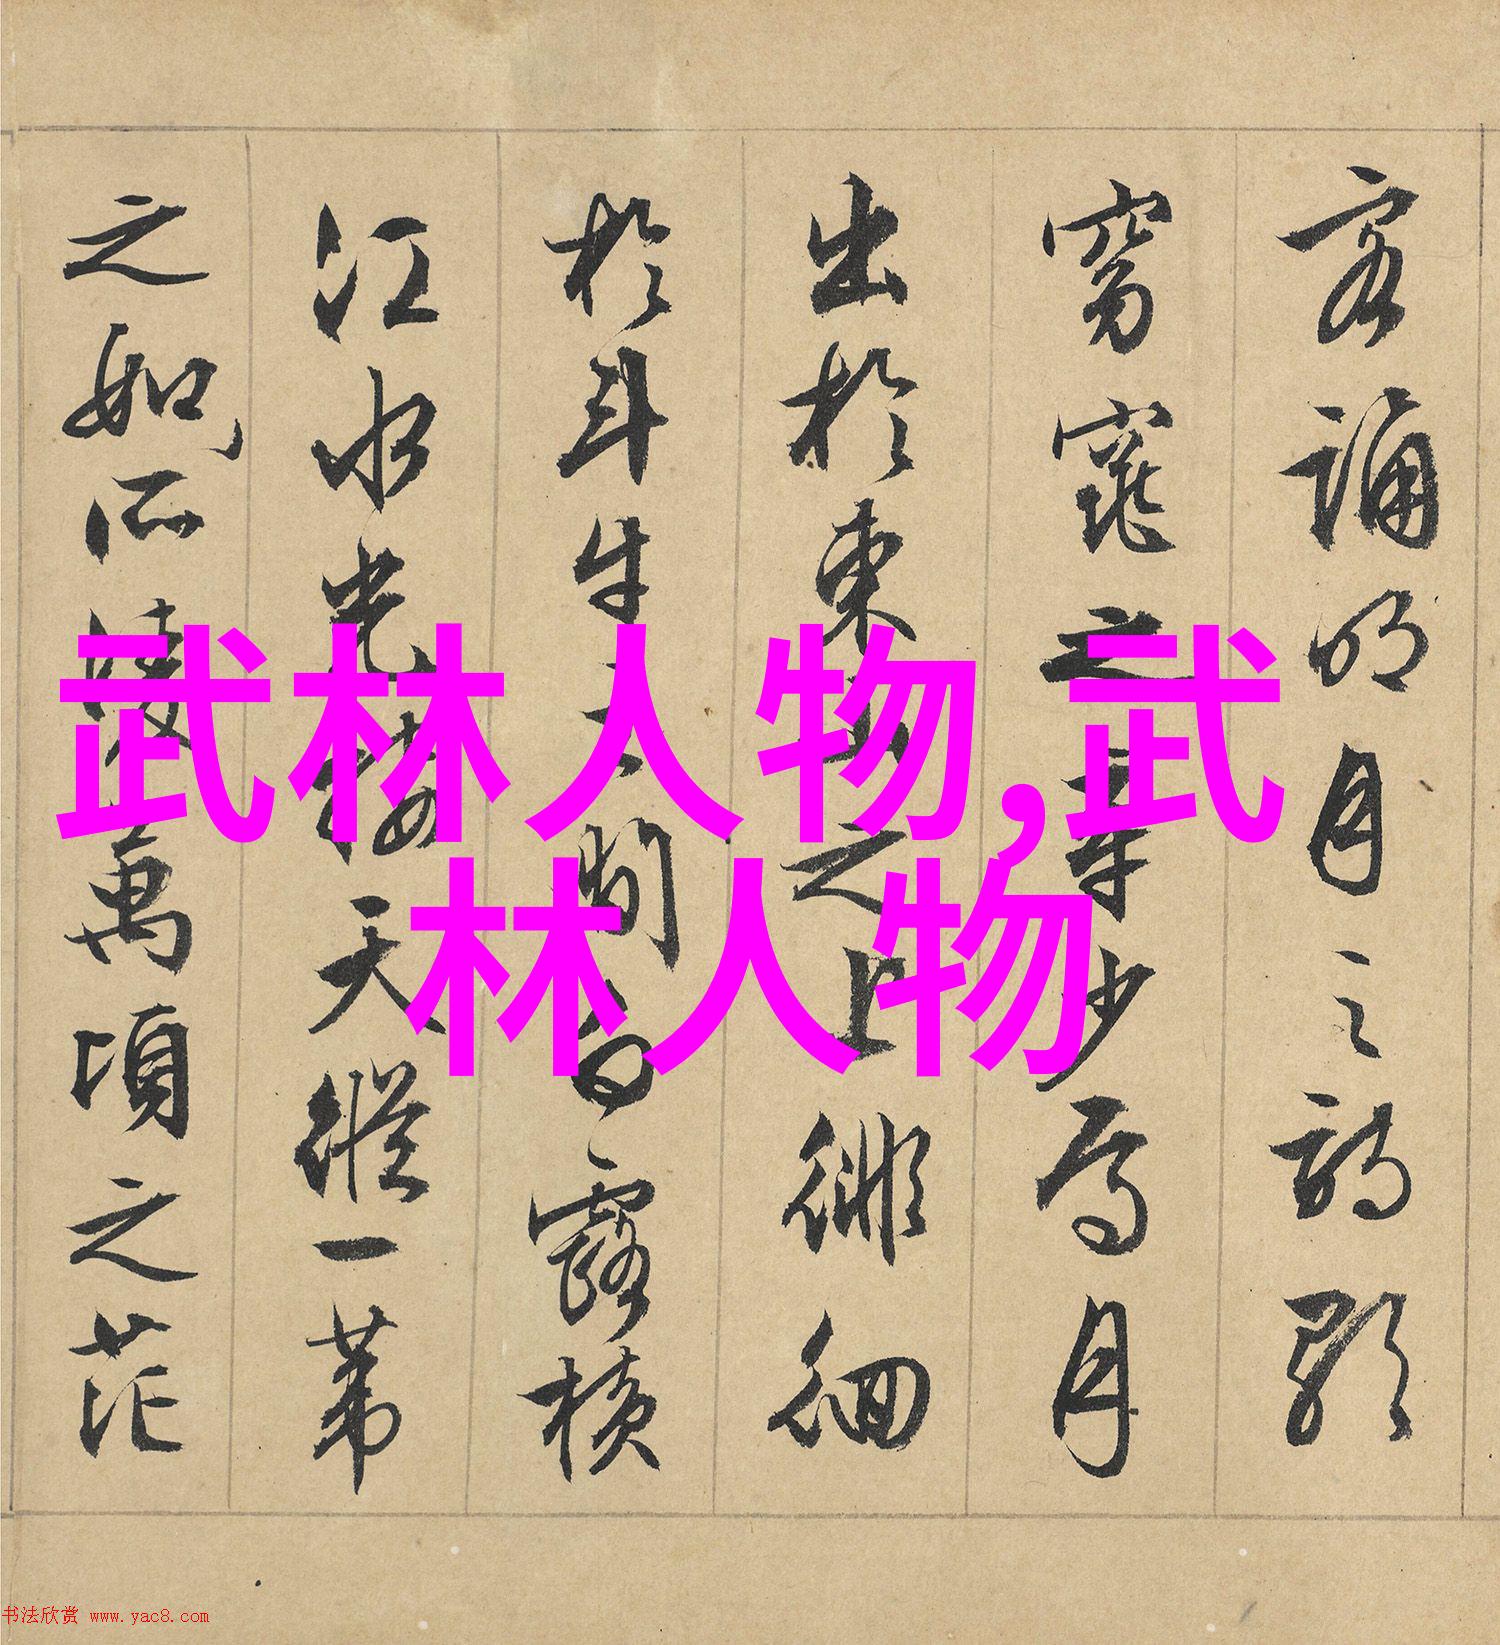 客誦明月之詩歌
窈窕之章少焉月
出於東山之上徘徊
於斗牛之間白露橫
江水光接天縱一葦
之如所凌萬頃之茫
武林人物,武
林人物
书法欣赏 www.yac8.com